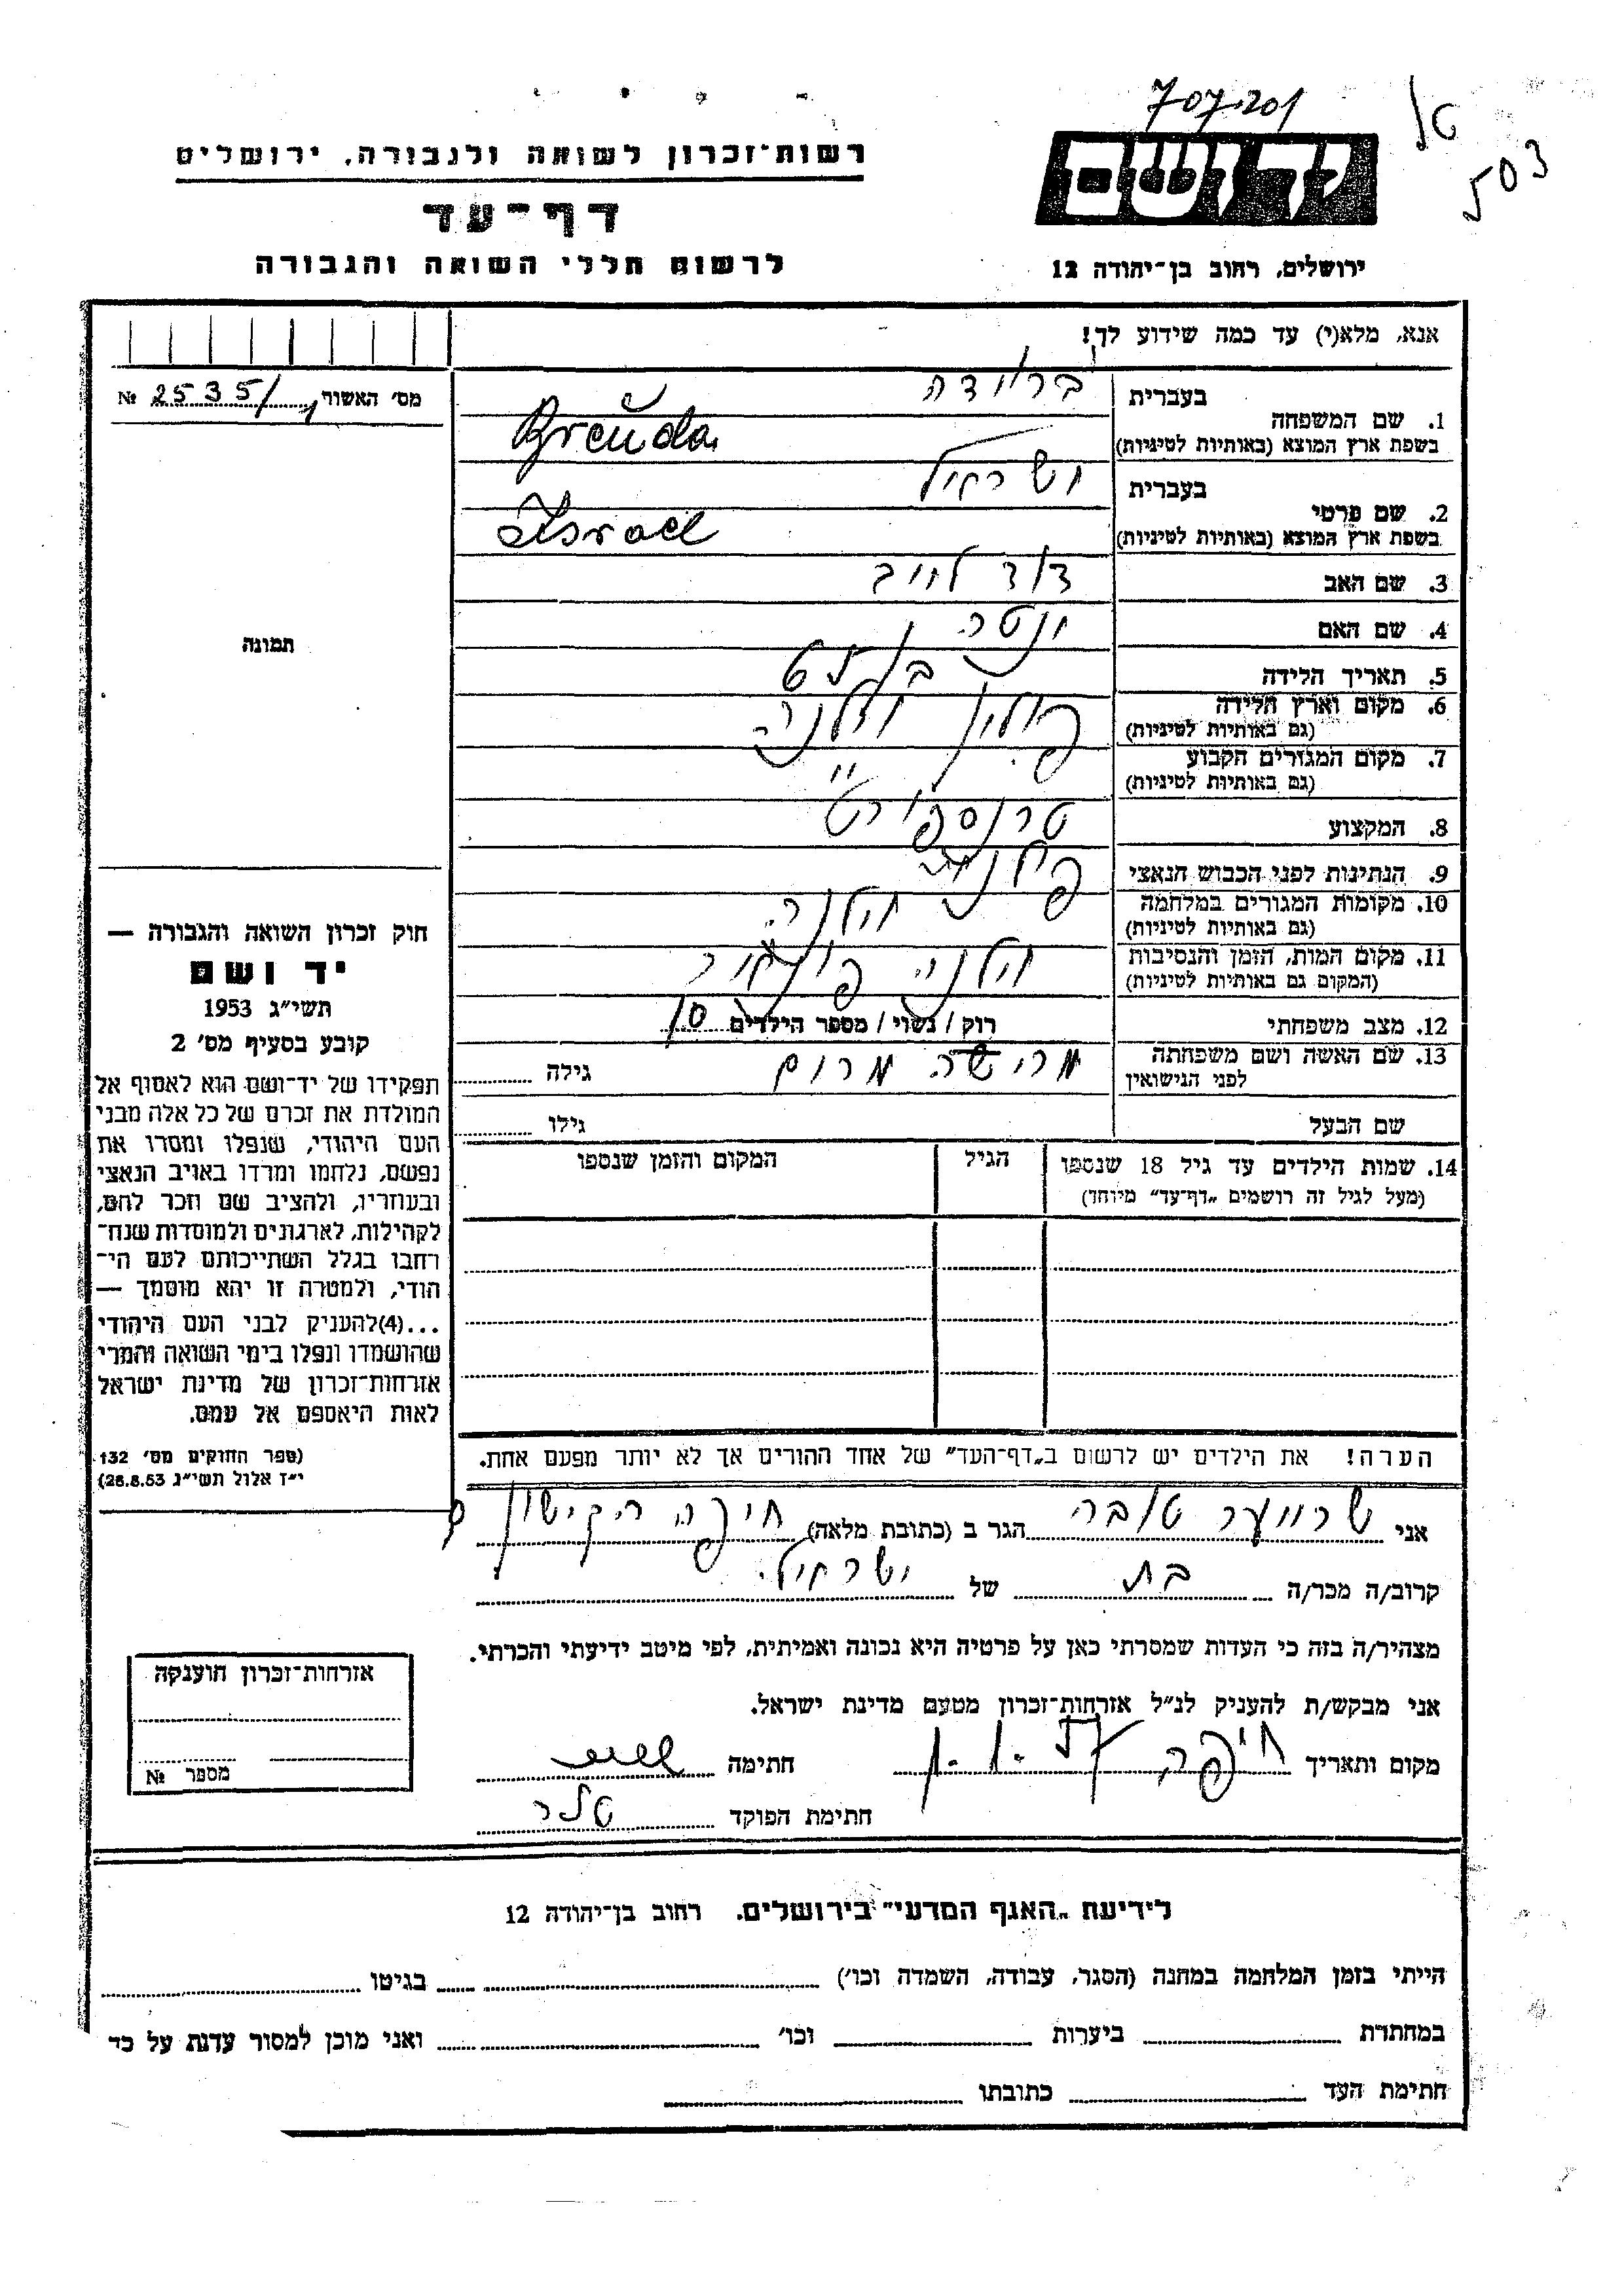 707.201
503
יד ושם
רשות־זכרון לשואה ולגבורה, ירושלים
דף־עד
לרשום חללי השואה והגבורה
ירושלים, רחוב בן־יהודה 12
אנא, מלא(י) עד כמה שידוע לך!
מס' האשור № 2535/1
1. שם המשפחה
בעברית
בשפת ארץ המוצא (באותיות לטיניות)
Breŭda
2. שם פרטי
בעברית
בשפת ארץ המוצא (באותיות לטיניות)
Israel
3. שם האב
דוד לייב
4. שם האם
5. תאריך הלידה
בן
6. מקום וארץ הלידה
(גם באותיות לטיניות)
פולין וילנה
7. מקום המגורים הקבוע
(גם באותיות לטיניות)
"
8. המקצוע
טרנספורט
9. הנתינות לפני הכבוש הנאצי
פולנית
10. מקומות המגורים במלחמה
(גם באותיות לטיניות)
וילנה
11. מקום המות, הזמן והנסיבות
(המקום גם באותיות לטיניות)
וילנה
12. מצב משפחתי
רוק / נשוי / מספר הילדים
13. שם האשה ושם משפחתה
לפני הנישואין
מרים
גילה
שם הבעל
גילו
14. שמות הילדים עד גיל 18 שנספו
(מעל לגיל זה רושמים „דף־עד" מיוחד)
הגיל
המקום והזמן שנספו
הערה! את הילדים יש לרשום ב„דף־העד" של אחד ההורים אך לא יותר מפעם אחת.
תמונה
חוק זכרון השואה והגבורה —
יד ושם
תשי"ג 1953
קובע בסעיף מס' 2
תפקידו של יד־ושם הוא לאסוף אל
המולדת את זכרם של כל אלה מבני
העם היהודי, שנפלו ומסרו את
נפשם, נלחמו ומרדו באויב הנאצי
ובעוזריו, ולהציב שם וזכר להם,
לקהילות, לארגונים ולמוסדות שנח־
רחבו בגלל השתייכותם לעם הי־
הודי, ולמטרה זו יהא מוסמך —
...(4)להעניק לבני העם היהודי
שהושמדו ונפלו בימי השואה והמרי
אזרחות־זכרון של מדינת ישראל
לאות היאספם אל עמם.
(ספר החוקים מס' 132
י"ז אלול תשי"ג 28.8.53)
אני שרווער טובה הגר ב (כתובת מלאה) חיפה הקישון
קרוב/ה מכר/ה בת של ישראל
מצהיר/ה בזה כי העדות שמסרתי כאן על פרטיה היא נכונה ואמיתית, לפי מיטב ידיעתי והכרתי.
אני מבקש/ת להעניק לנ"ל אזרחות־זכרון מטעם מדינת ישראל.
מקום ותאריך חיפה חתימה
חתימת הפוקד
אזרחות־זכרון הוענקה
מספר №
לידיעת „האגף המדעי" בירושלים. רחוב בן־יהודה 12
הייתי בזמן המלחמה במחנה (הסגר, עבודה, השמדה וכו') בגיטו
במחתרת ביערות וכו' ואני מוכן למסור עדות על כך
חתימת העד כתובתו